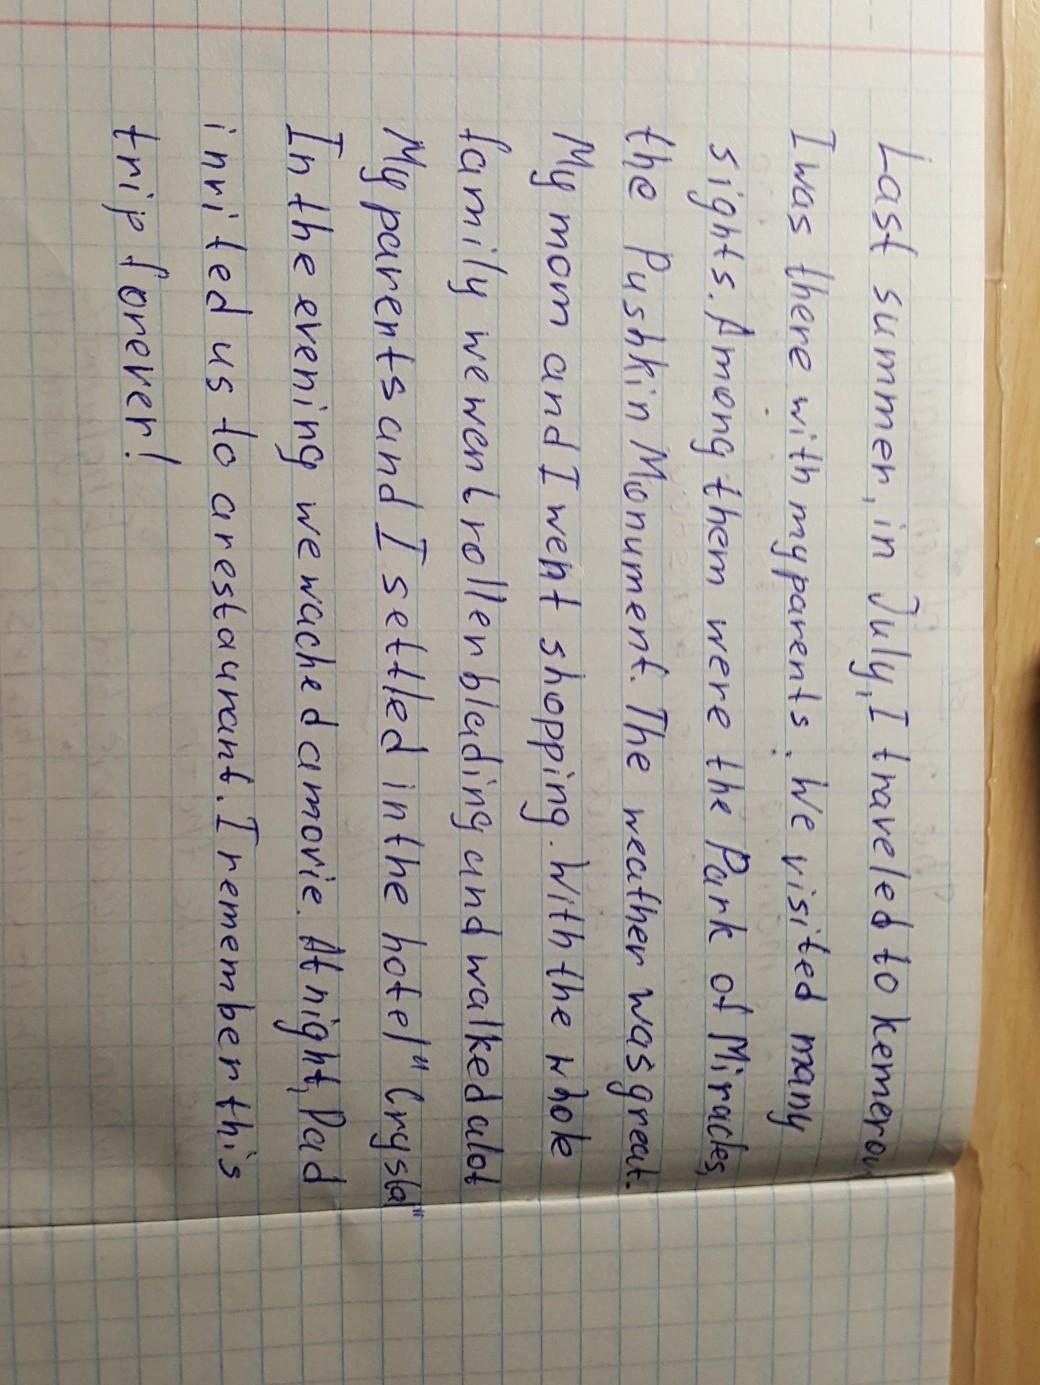 Last summer, in July, I traveled to Kemerov
I was there with my parents. We visited many
sights. Among them were the Park of Miracles,
the Pushkin Monument. The weather was great.
My mom and I went shopping. With the whole
family we went rollerblading and walked alot
My parents and I settled in the hotel "Crystal"
In the evening we wached a movie. At night, Dad
invited us to a restaurant. I remember this
trip forever!